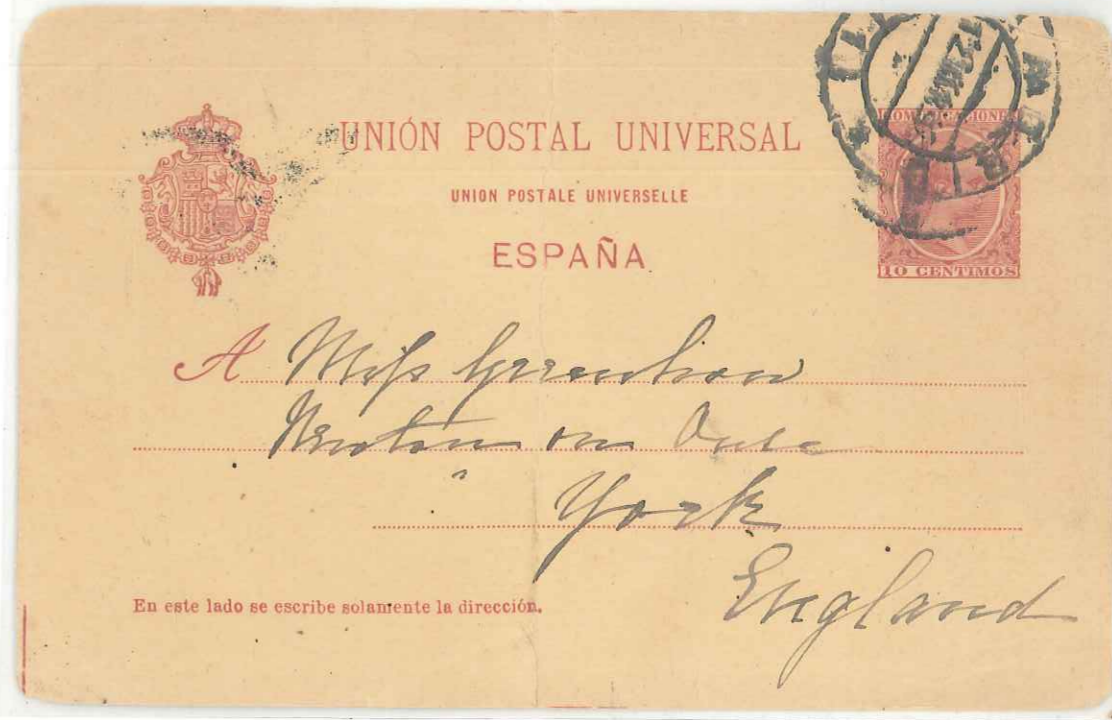 UNIÓN POSTAL UNIVERSAL
UNION POSTALE UNIVERSELLE
ESPAÑA
10 CENTIMOS
A Miss
Newton on Ouse
York
England
En este lado se escribe solamente la dirección.